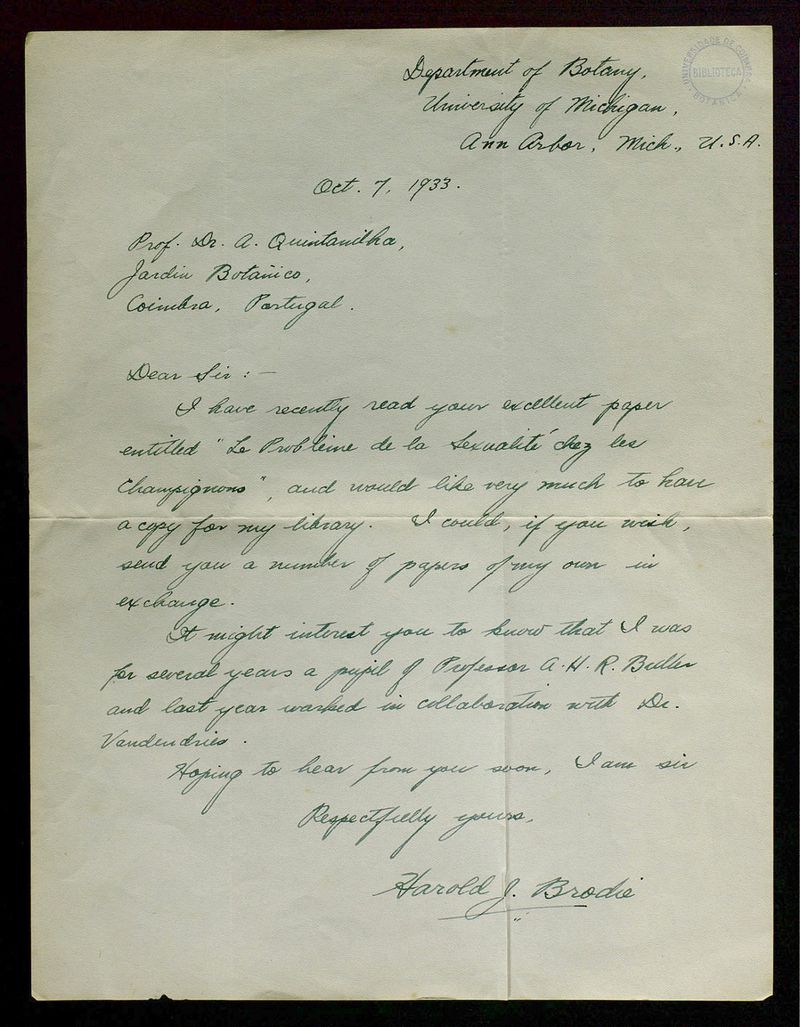 UNIVERSIDADE DE COIMBRA
BIBLIOTECA
BOTANICA
Department of Botany,
University of Michigan,
Ann Arbor, Mich., U.S.A.
Oct. 7, 1933.
Prof. Dr. A. Quintanilha,
Jardin Botañico,
Coimbra, Portugal.
Dear Sir :—
I have recently read your excellent paper
entitled "Le Problème de la Sexualité chez les
Champignons", and would like very much to have
a copy for my library. I could, if you wish,
send you a number of papers of my own in
exchange.
It might interest you to know that I was
for several years a pupil of Professor A. H. R. Buller
and last year worked in collaboration with Dr.
Vandendries.
Hoping to hear from you soon, I am sir
Respectfully yours,
Harold J. Brodie